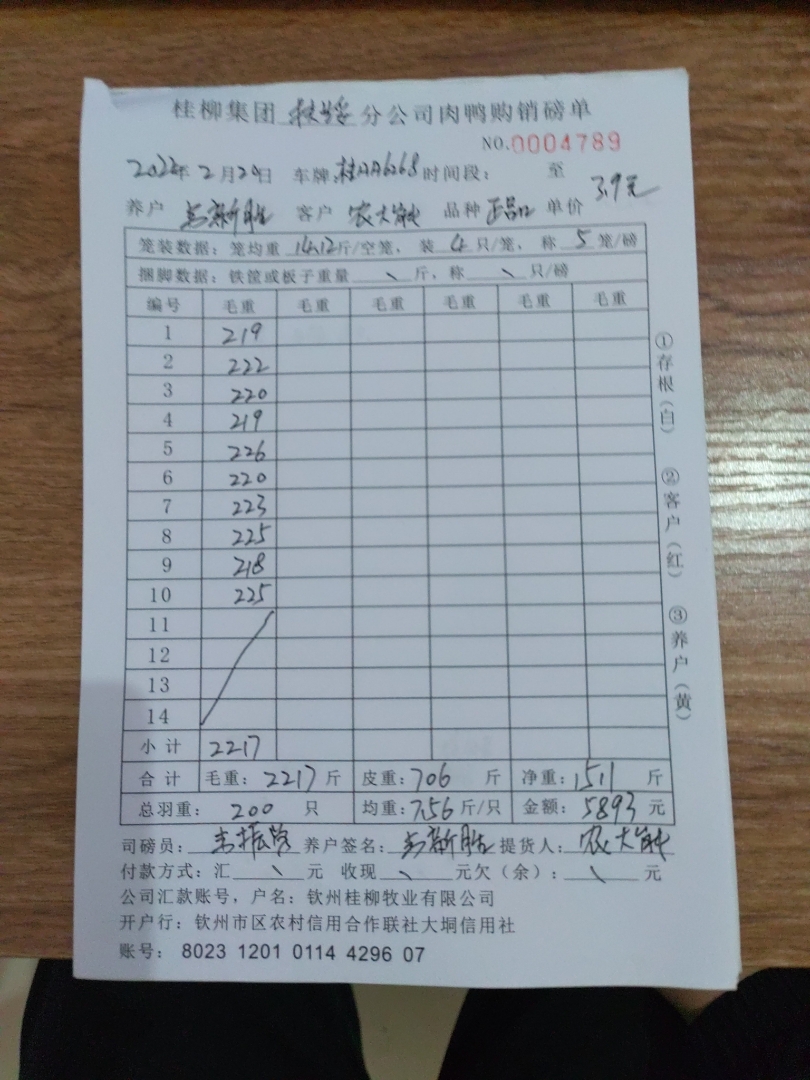 桂柳集团 扶绥 分公司肉鸭购销磅单
NO.0004789
年2月20日 车牌:桂AA6268 时间段: 至
养户 新胜 客户 农大 品种 单价 3.9元
笼装数据: 笼均重 14.12斤/空笼, 装 4 只/笼, 称 5 笼/磅
捆脚数据: 铁筐或板子重量 \ 斤, 称 \ 只/磅
编号 毛重 毛重 毛重 毛重 毛重 毛重
1 219
2 222
3 220
4 219
5 226
6 220
7 223
8 225
9 218
10 225
11
12
13
14
小计 2217
合计 毛重: 2217 斤 皮重: 706 斤 净重: 1511 斤
总羽重: 200 只 均重: 7.56 斤/只 金额: 5893 元
司磅员: 振 养户签名: 新胜 提货人: 农大
付款方式: 汇 \ 元 收现 \ 元欠(余): \ 元
公司汇款账号, 户名: 钦州桂柳牧业有限公司
开户行: 钦州市区农村信用合作联社大垌信用社
账号: 8023 1201 0114 4296 07
①存根(白)
②客户(红)
③养户(黄)